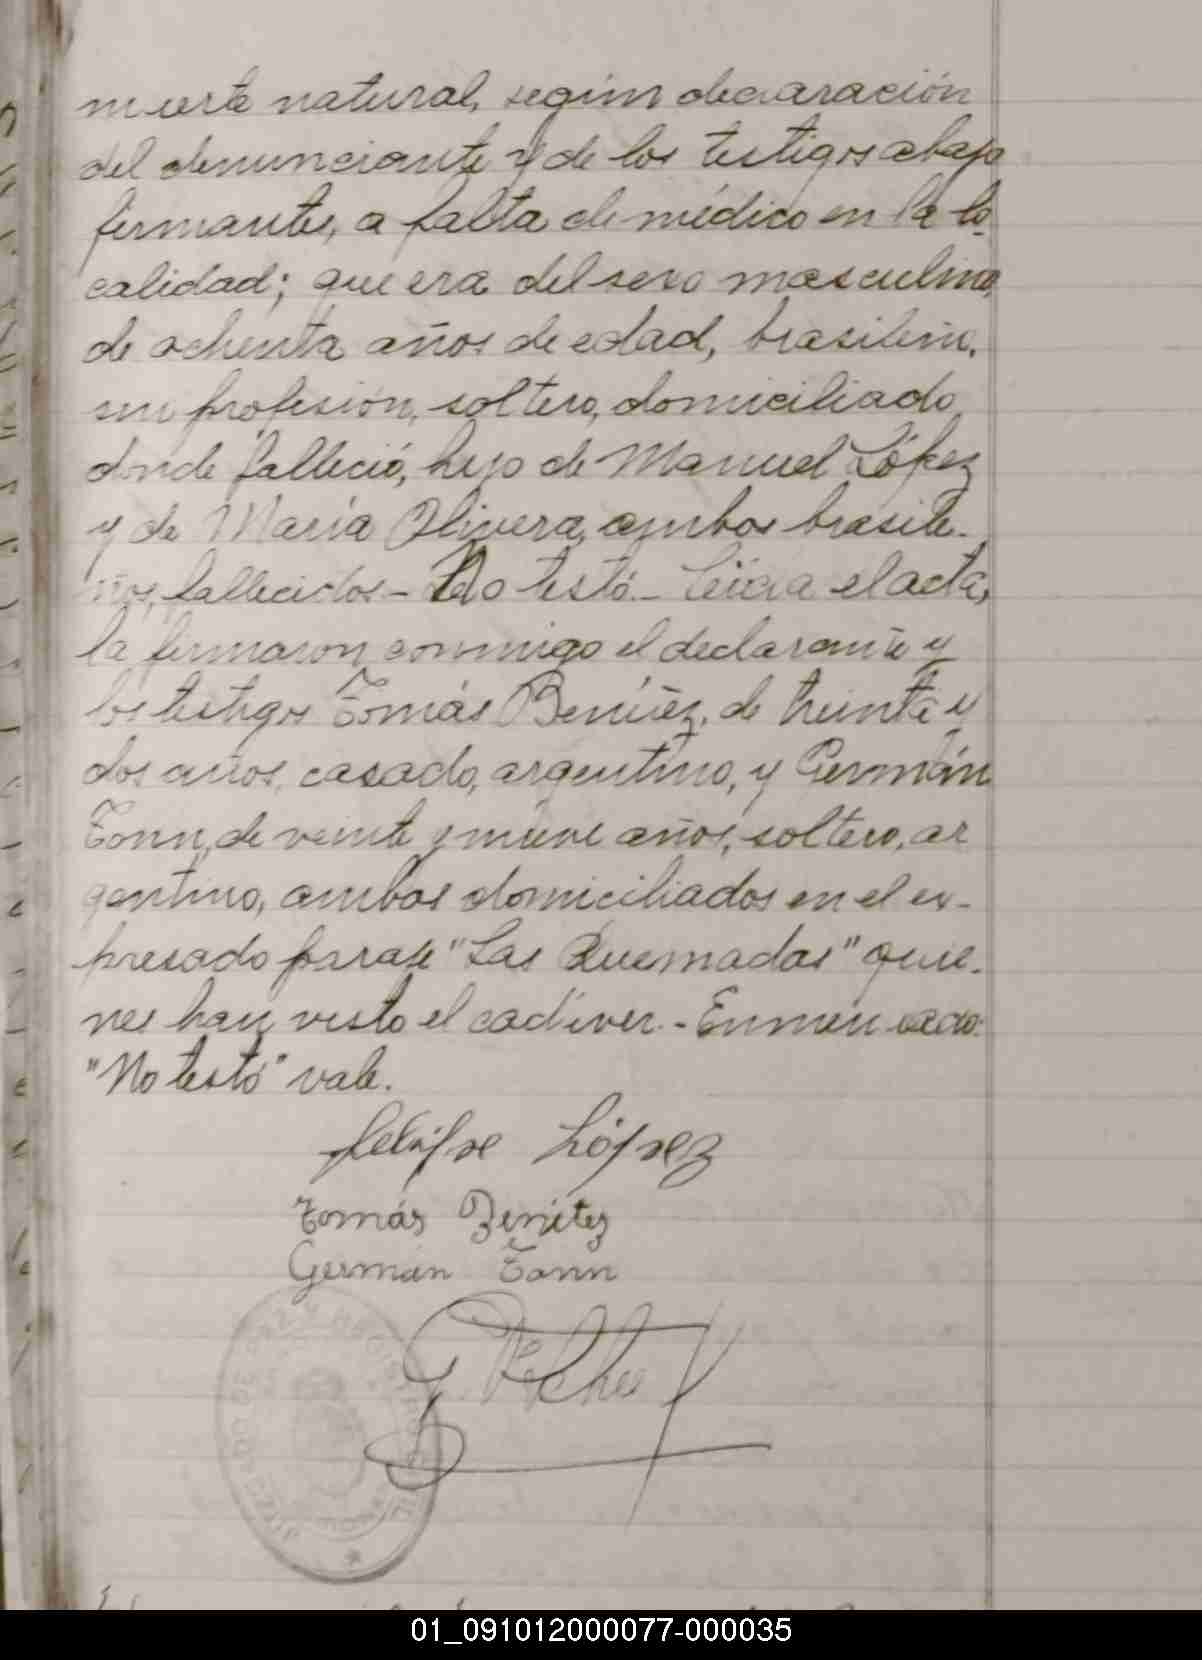 muerte natural, según declaración
del denunciante y de los testigos abajo
firmantes, a falta de médico en la lo-
calidad; que era del sexo masculino,
de ochenta años de edad, brasileño,
sin profesión, soltero, domiciliado
donde falleció, hijo de Manuel López
y de María Olivera, ambos brasile-
ños, fallecidos.- No testó.- Leída el acta,
la firmaron conmigo el declarante y
los testigos Tomás Benítez, de treinta y
dos años, casado, argentino, y Germán
Tonn, de veinte y nueve años, soltero, ar
gentino, ambos domiciliados en el ex-
presado paraje "Las Quemadas" quie-
nes han visto el cadáver.- Enmendado:
"No testó" vale.
Felipe López
Tomás Benítez
Germán Tonn
JUZGADO DE PAZ Y REGISTRO CIVIL
01_091012000077-000035